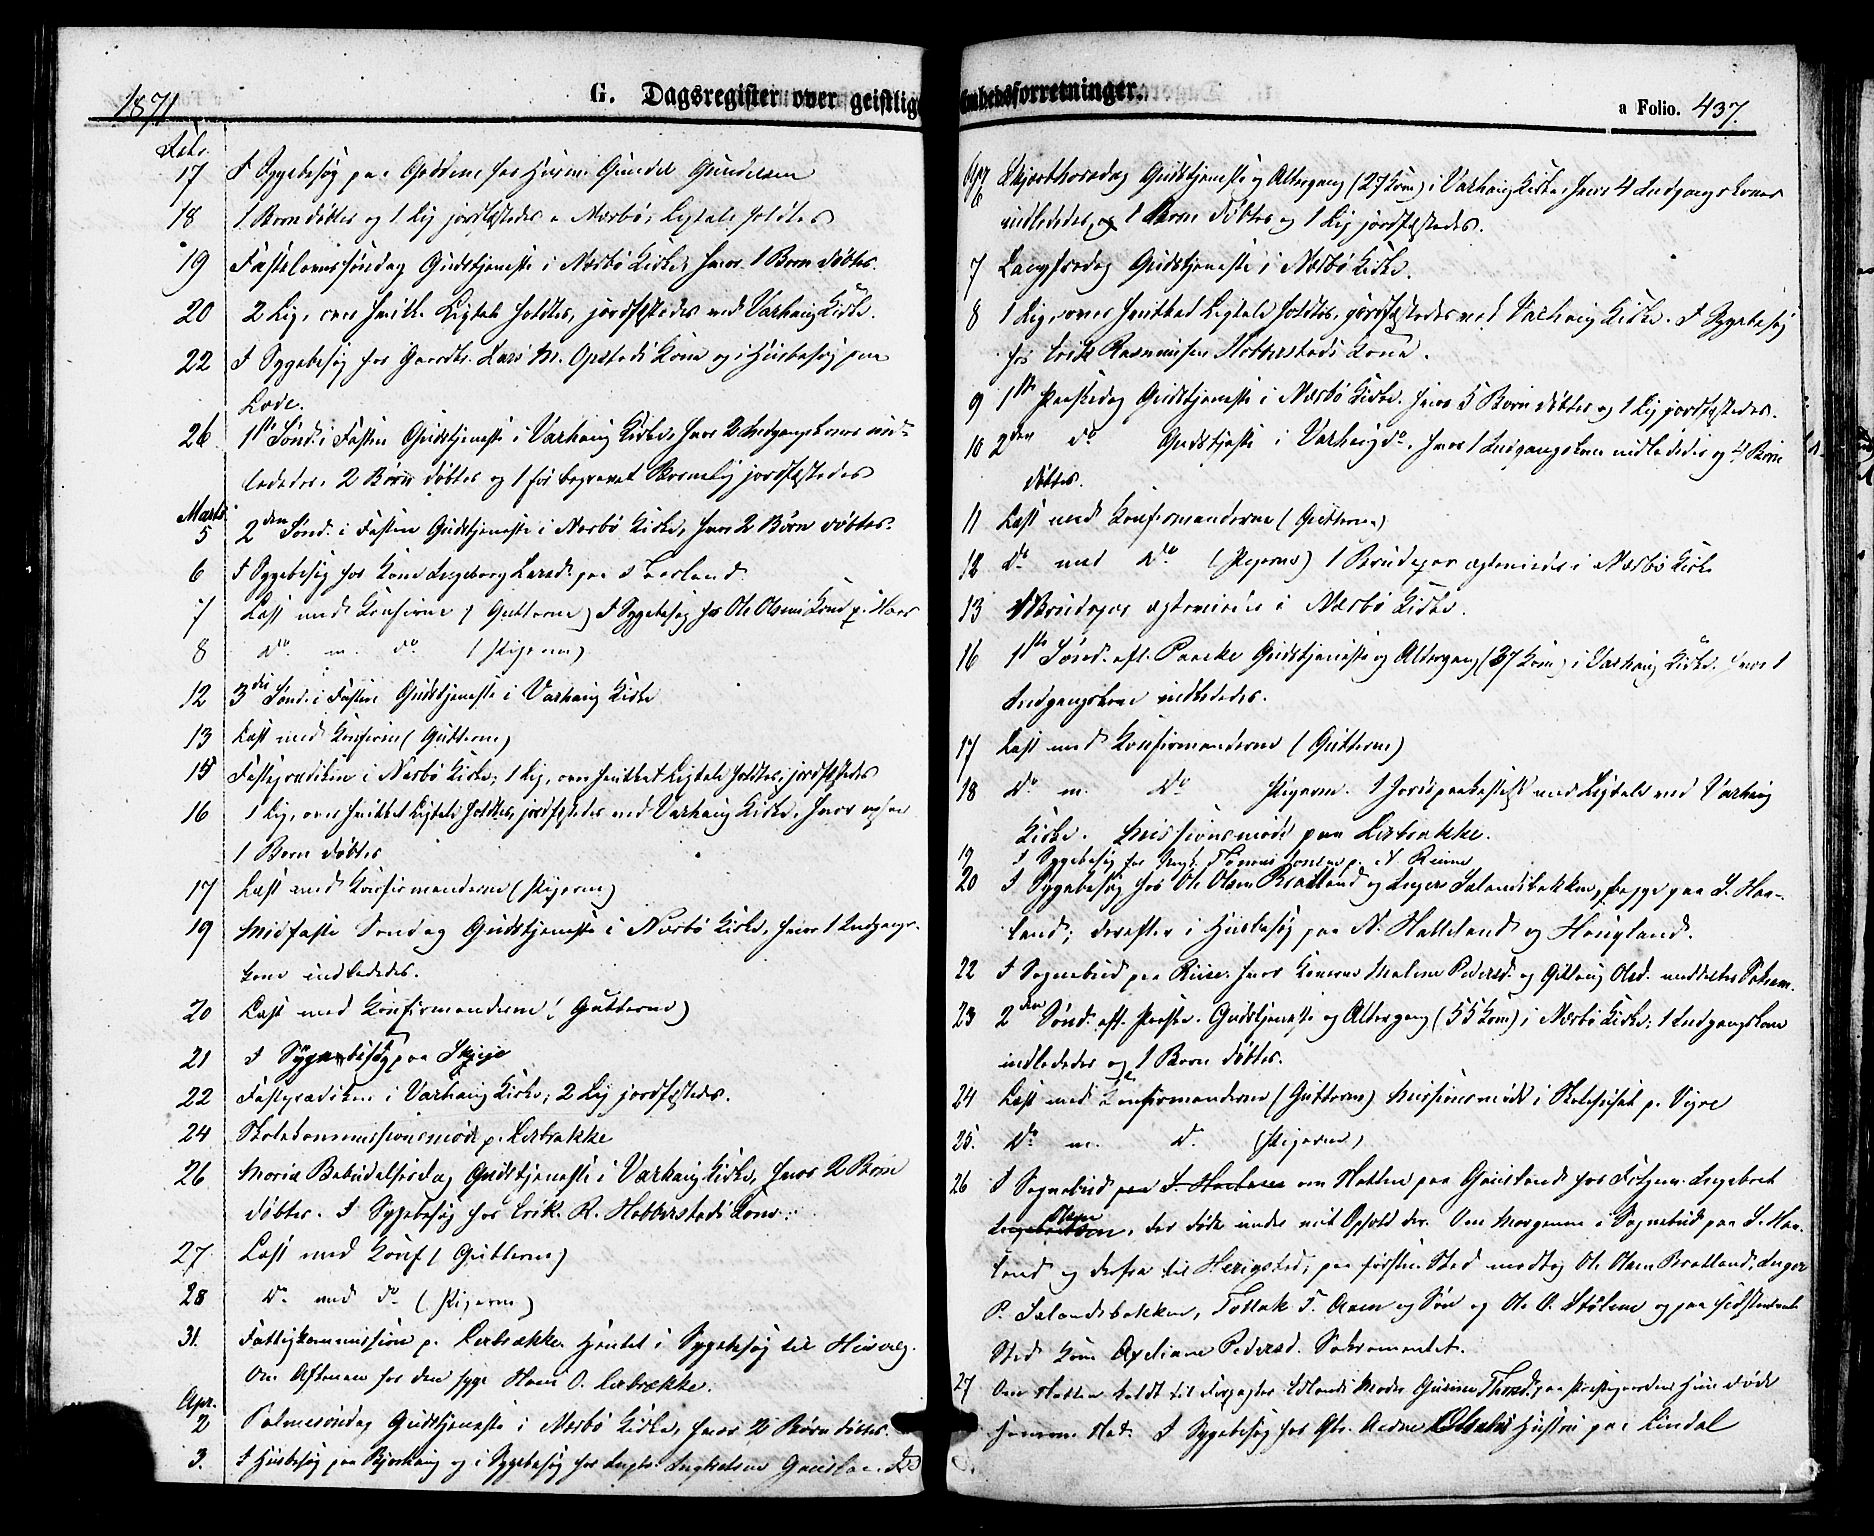 1871
G. Dagsregister over geistlige Embedsforretninger.
a Folio. 437.
Febr.
17 I Sygebesøg paa
18 1 Barn døbtes og 1 Lig jordfæstedes v Nærbö, Ligtale holdtes
19 Fastelavnssöndag Gudstjeneste i Nærbö Kirke, hvor 1 Barn döbtes.
20 2 Lig, over hvilke Ligtale holdtes, jordfæstedes ved Varhaug Kirke.
22 I Sygebesøg hos Gaardbr. Lars M. Opstads Kone og i Husbesøg paa
Lode.
26 1ste Sönd. i Fasten Gudstjeneste i Varhaug Kirke, hvor 2 Indgangskoner ind-
lededes, 2 Börn döbtes og 1 för begravet Barnelig jordfæstedes
Marts
5 2den Sönd. i Fasten Gudstjeneste i Nærbö Kirke, hvor 2 Börn döbtes.
6 I Sygebesög hos Kone Ingeborg Larsd. paa
7 Læst med Konfirm. (Gutterne) I Sygebesög hos Ole Olsens Kone p. Haar
8 do m. do (Pigerne)
12 3die Sönd. i Fasten Gudstjeneste i Varhaug Kirke
13 Læst med Konfirm (Gutterne)
15 Fasteprædiken i Nærbö Kirke; 1 Lig, over hvilket Ligtale holdtes, jordfæstedes
16 1 Lig, over hvilket Ligtale holdtes, jordfæstedes ved Varhaug Kirke, hvor ogsaa
1 Barn döbtes
17 Læst med Konfirmanderne (Pigerne)
19 Midfaste Söndag Gudstjeneste i Nærbö Kirke, hvor 1 Indgangs-
kone indlededes.
20 Læst med Konfirmanderne (Gutterne)
21 I Sygebesög paa
22 Fasteprædiken i Varhaug Kirke; 2 Lig jordfæstedes.
24 Skolekommissionsmöde p. Lerbrække
26 Maria Bebudelsesdag Gudstjeneste i Varhaug Kirke, hvor 2 Börn
döbtes. I Sygebesög hos Erik R. Hobberstads Kone.
27 Læst med Konf (Gutterne)
28 do med do (Pigerne)
31. Fattigkommission p. Lerbrække. Hentet i Sygebesög til
Om Aftenen hos den syge Hans O. Lerbrække.
Apr.
2 Palmesöndag Gudstjeneste i Nærbö Kirke, hvor 2 Börn döbtes.
3. I Husbesög paa Bjorhaug og i Sygebesög hos
Apr
6 Skjærthorsdag Gudstjeneste og Altergang (27 Kom) i Varhaug Kirke, hvor 4 Indgangskoner
indlededes, 1 Barn döbtes og 1 Lig jordfæstedes.
7 Langfredag Gudstjeneste i Nærbö Kirke.
8 1 Lig, over hvilket Ligtale holdtes, jordfæstedes ved Varhaug Kirke. I Sygebesög
hos Erik Rasmussen Hobberstads Kone.
9 1ste Paaskedag Gudstjeneste i Nærbö Kirke. hvor 5 Börn döbtes og 1 Lig jordfæstedes.
10 2den do Gudstjeneste i Varhaug do, hvor 1 Indgangskone indlededes og 4 Börn
döbtes.
11 Læst med Konfirmanderne (Gutterne)
12 do med do (Pigerne) 1 Brudepar ægteviedes i Nærbö Kirke
13 1 Brudepar ægteviedes i Nærbö Kirke.
16 1ste Sönd. eft. Paaske Gudstjeneste og Altergang (37 Kom) i Varhaug Kirke. hvor 1
Indgangskone indlededes.
17 Læst med Konfirmanderne (Gutterne)
18 do m. do Pigerne. 1 Jordpaakastelse med Ligtale ved Varhaug
Kirke. Missionsmöde paa Lerbrække.
19 I Sygebesög hos
20 I Sygebesög hos Ole Olsen Bratland og Inger Salandsbakken, begge paa S. Haa-
land; derefter i Husbesög paa N. Hatteland og Haugland.
22 I Sognebud paa hvor Konerne Malene Pedersd. og Gitlaug Olsd. meddeltes Sakram.
23 2den Sönd. eft. Paaske. Gudstjeneste og Altergang (55 Kom) i Nærbö Kirke; 1 Indgangskone
indlededes og 1 Barn döbtes.
24 Læst med Konfirmanderne (Gutterne) Missionsmöde i Skolehuset p. Vigre
25. do m. d. (Pigerne)
26 I Sognebud om Natten paa Gausland hos Ingebret
Olsen, der döde under mit Ophold der. Om Morgenen i Sognebud paa S. Haa-
land og derfra til Herigstad; paa förste Sted modtog Ole Olsen Bratland, Inger
P. Salandsbakken, og Sön og Ole O. Stölene og paa sidstnævnte
Sted Kone Axeliane Pedersd. Sakramentet.
27 Om Natten kaldt til Moder paa Præstegaarden. Hun döde
samme Nat. I Sygebesög hos Hustru paa Lindal